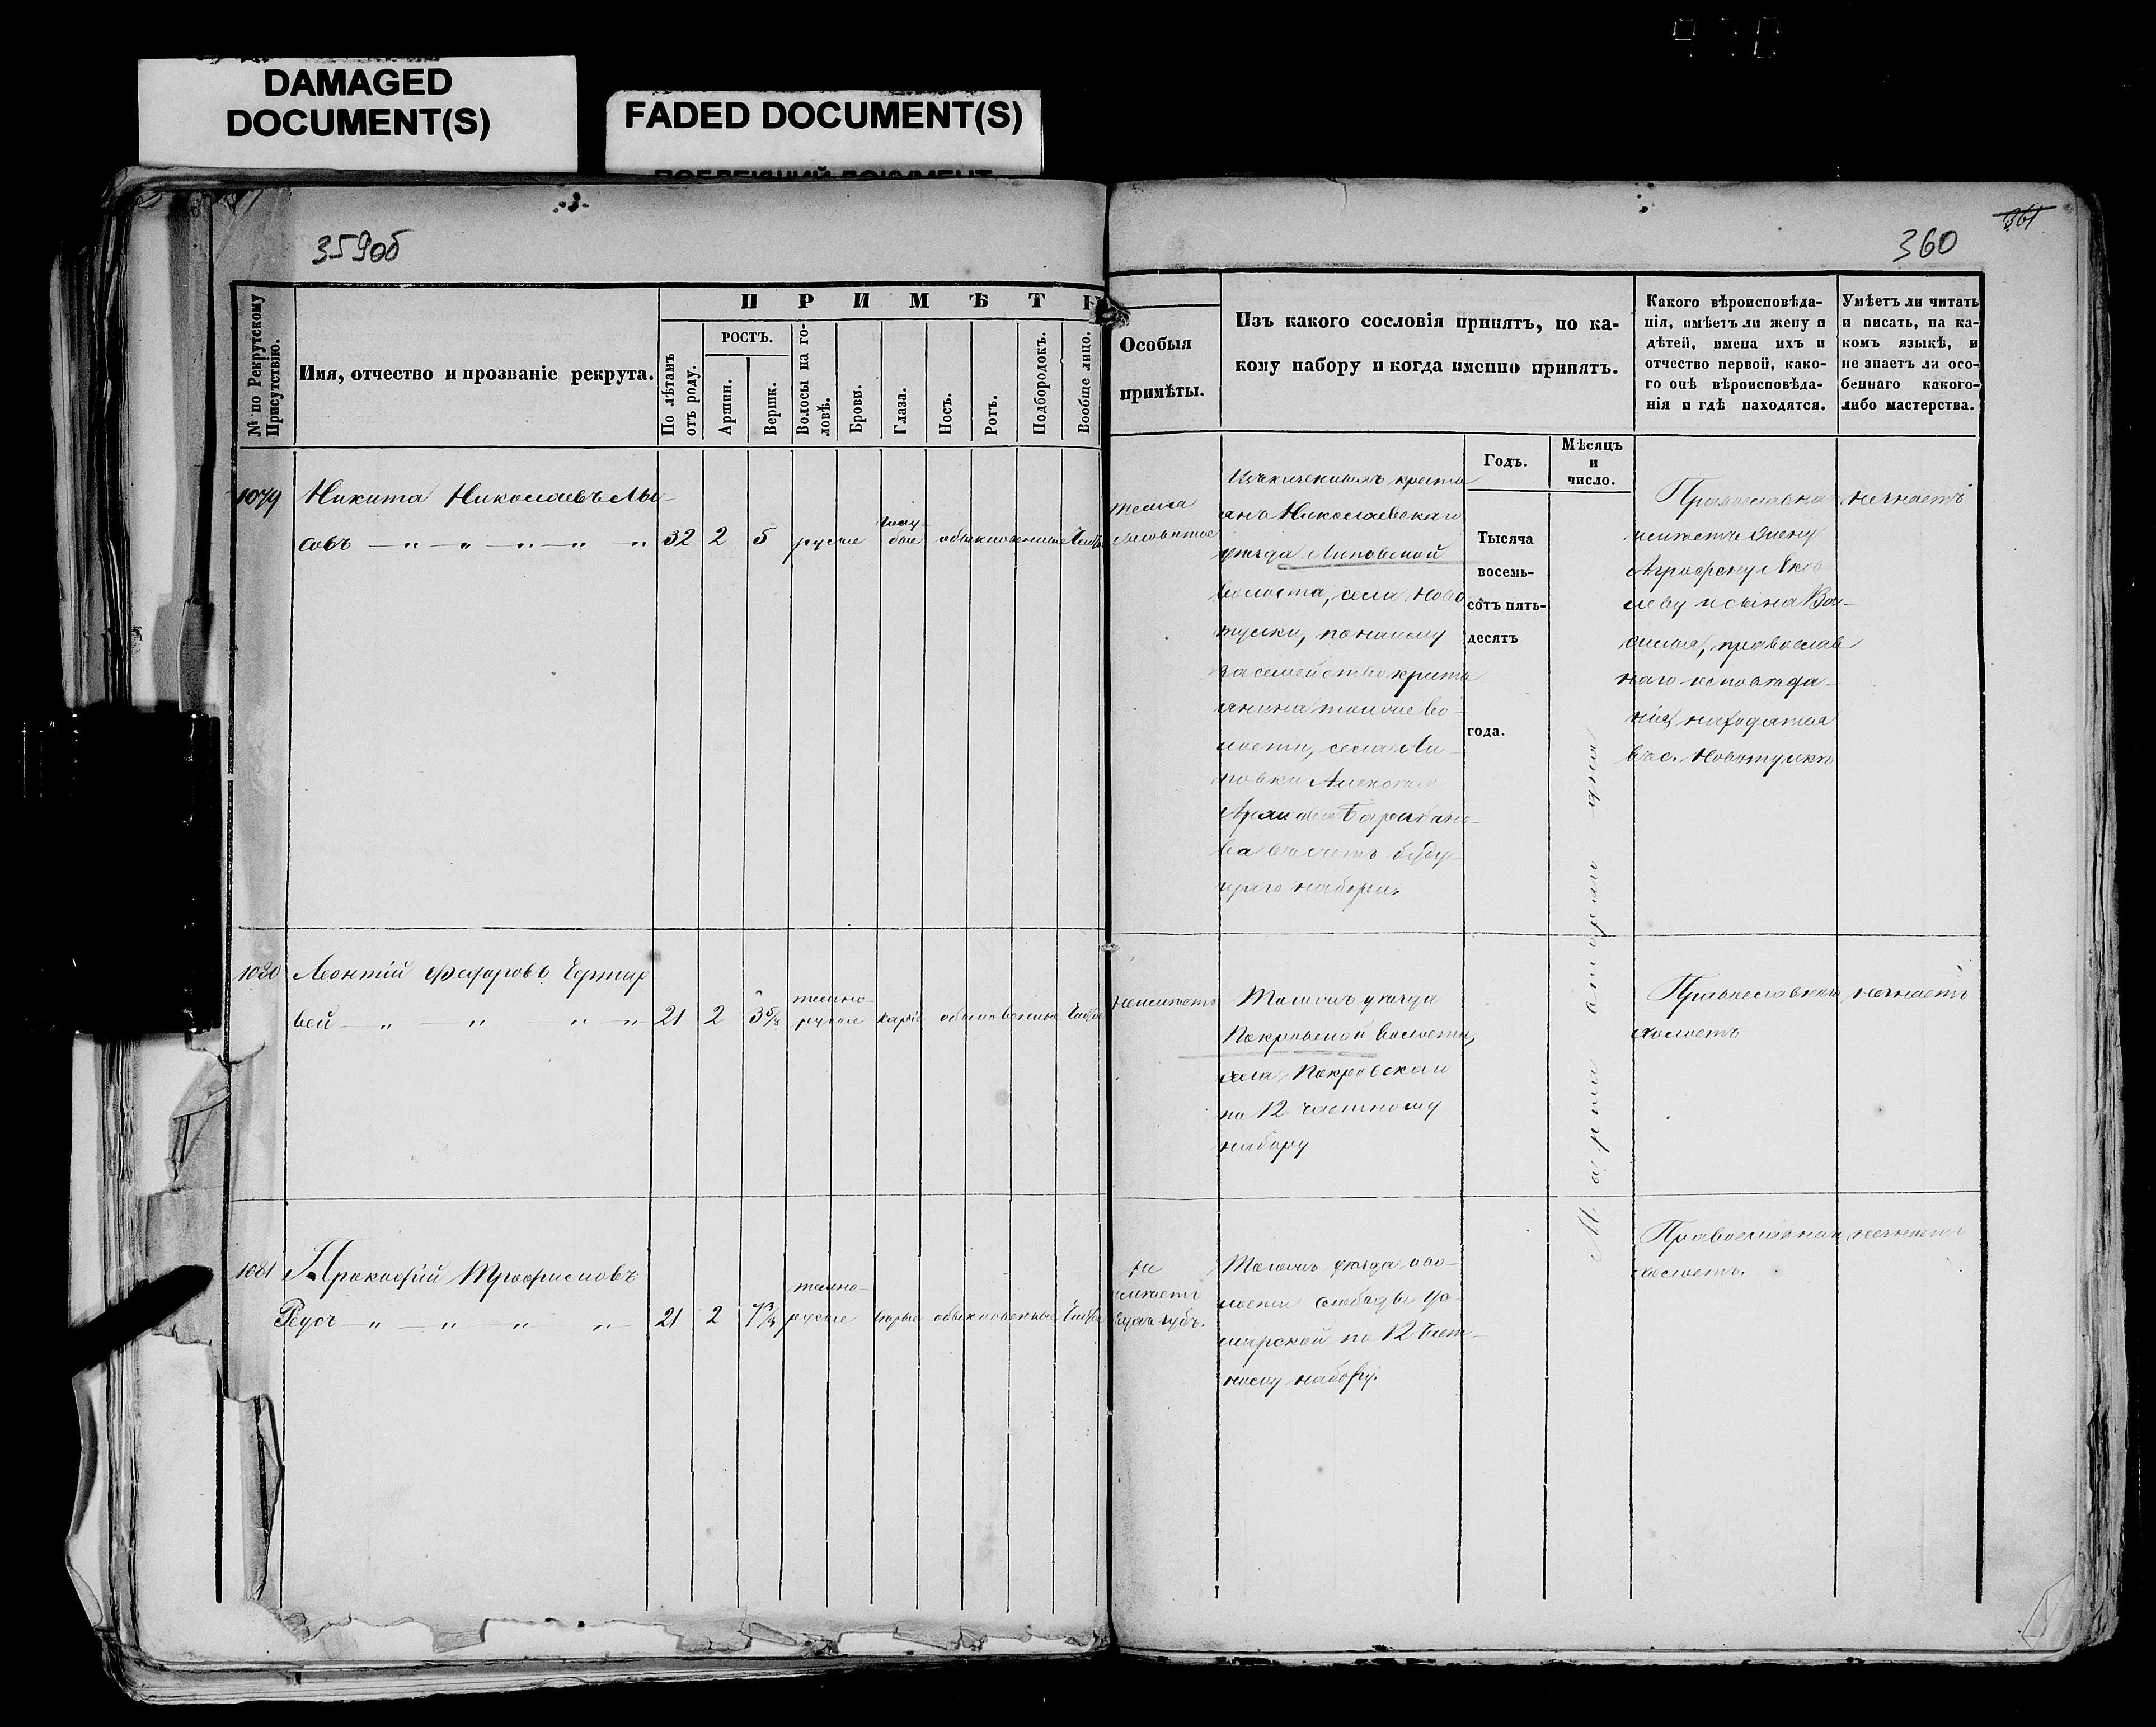 DAMAGED
DOCUMENT(S)
FADED DOCUMENT(S)
359об
360
361
№ по Рекрутскому Присутствію.
Имя, отчество и прозваніе рекрута.
ПРИМѢТЫ
По лѣтамъ отъ роду.
РОСТЪ.
Аршин.
Вершк.
Волосы на головѣ.
Брови.
Глаза.
Носъ.
Ротъ.
Подбородокъ.
Вообще лицо.
Особыя
примѣты.
Изъ какого сословія принятъ, по ка-
кому набору и когда именно принятъ.
Годъ.
Мѣсяцъ
и
число.
Какого вѣроисповѣда-
нія, имѣетъ ли жену и
дѣтей, имена ихъ и
отчество первой, како-
го онѣ вѣроисповѣда-
нія и гдѣ находятся.
Умѣетъ ли читать
и писать, на ка-
комъ языкѣ, и
не знаетъ ли осо-
беннаго какого-
либо мастерства.
Тысяча
восемь-
сотъ пять-
десятъ
года.
Марта втораго дня
1079
Никита Николаевъ Лы-
совъ 32 2 5 русые голу-
бые обыкновенные чистое
крестьянъ Николаевскаго
уѣзда Липовской
волости, села Ново
тулки, по найму
за семейство крестья
янина тойже во-
лости, села Ли-
повки Алексѣя
ва въ счетъ буду-
щаго набора.
Православнаго
имѣетъ жену
Агрофену Яков
леву и сына Ва-
силья, православ
наго исповѣда-
нія, находятся
въ с. Новотулкѣ
незнаетъ
1080
Леонтій Федоровъ
вей 21 2 3 5/8 темно-
русые каріе обыкновенные чистое
неимѣетъ
Тогожъ уѣзда
Покровской волости,
села Покровскаго
по 12 частному
набору
Православнаго
холостъ
незнаетъ
1081
Прокофій Трофимовъ
Реусъ 21 2 темно-
русые сѣрые обыкновенные чистое
не
имѣетъ
Тогожъ уѣзда и во-
лости слободы
по 12 част-
ному набору.
Православнаго
холостъ.
незнаетъ